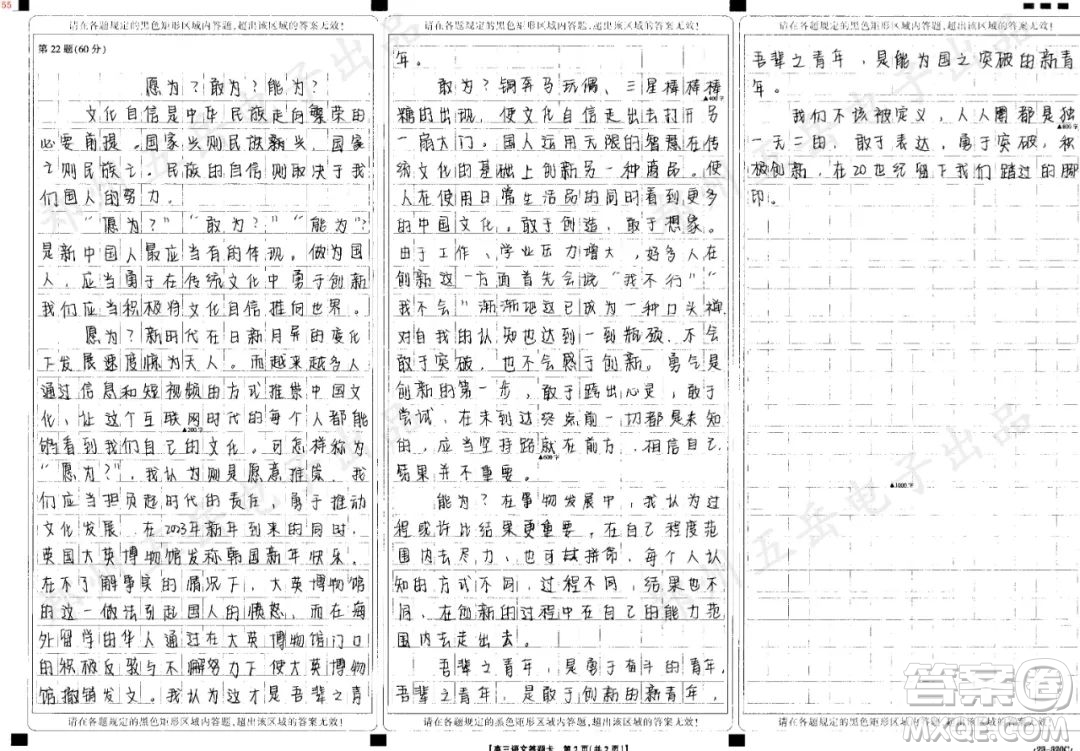 55
请在各题规定的黑色矩形区域内答题,超出该区域的答案无效!
第22题(60分)
愿为?敢为?能为?
文化自信是中华民族走向繁荣的
必要前提。国家兴则民族新兴,国家
之则民族之。民族的自信则取决于我
们国人的努力。
“愿为?”“敢为?”“能为?”
是新中国人最应当有的体现。做为国
人,应当勇于在传统文化中勇于创新
我们应当积极将文化自信推向世界。
愿为?新时代在日新月异的变化
下发展速度惊为天人。而越来越多人
通过信息和短视频的方式推崇中国文
化、让这个互联网时代的每个人都能
够看到我们自己的文化。可怎样称为
“愿为?”,我认为则是愿意推崇、我
们应当担负起时代的责任,勇于推动
文化发展。在2003年新年到来的同时,
英国大英博物馆发称韩国新年快乐。
在不了解事实的情况下,大英博物馆
的这一做法引起国人的愤怒,而在海
外留学的华人通过在大英博物馆门口
的积极反教与不懈努力下使大英博物
馆撤销发文。我认为这才是吾辈之青
请在各题规定的黑色矩形区域内答题,超出该区域的答案无效!
请在各题规定的黑色矩形区域内答题,超出该区域的答案无效!
年。
敢为?铜奔马玩偶、三星棒棒棒
▲400字
糖的出现,使文化自信走出去打开另
一扇大门。国人运用无限的智慧在传
统文化的基础上创新另一种商品。使
人在使用日常生活品的同时看到更多
的中国文化。敢于创造,敢于想象。
由于工作、学业压力增大,好多人在
创新这一方面首先会说“我不行”“
我不会”渐渐地这已成为一种口头禅,
对自我的认知也达到一到瓶颈,不会
敢于突破,也不会热于创新。勇气是
创新的第一步,敢于踏出心灵,敢于
尝试,在未到达终点前一切都是未知
的,应当坚持路就在前方,相信自己,
▲600字
结果并不重要。
能为?在事物发展中,我认为过
程或许比结果更重要。在自己程度范
围内去尽力,也可以拼命,每个人认
知的方式不同,过程不同,结果也不
同、在创新的过程中在自己的能力范
围内去走出去。
吾辈之青年,是勇于奋斗的青年,
吾辈之青年,是敢于创新的新青年,
请在各题规定的黑色矩形区域内答题,超出该区域的答案无效!
【高三语文答题卡 第2页(共2页)】
请在各题规定的黑色矩形区域内答题,超出该区域的答案无效!
吾辈之青年,是能为国之突破的新青
年。
▲800字
我们不该被定义,人人圈都是独
一无二的,敢于表达,勇于突破,积
极创新,在20世纪留下我们踏过的脚
印。
▲1000字
请在各题规定的黑色矩形区域内答题,超出该区域的答案无效!
答案卷
五岳电子出品